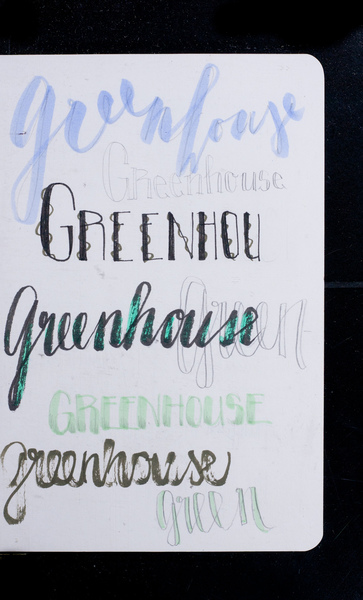 greenhouse
Greenhouse
GREENHOU
Greenhouse
Green
GREENHOUSE
greenhouse
green